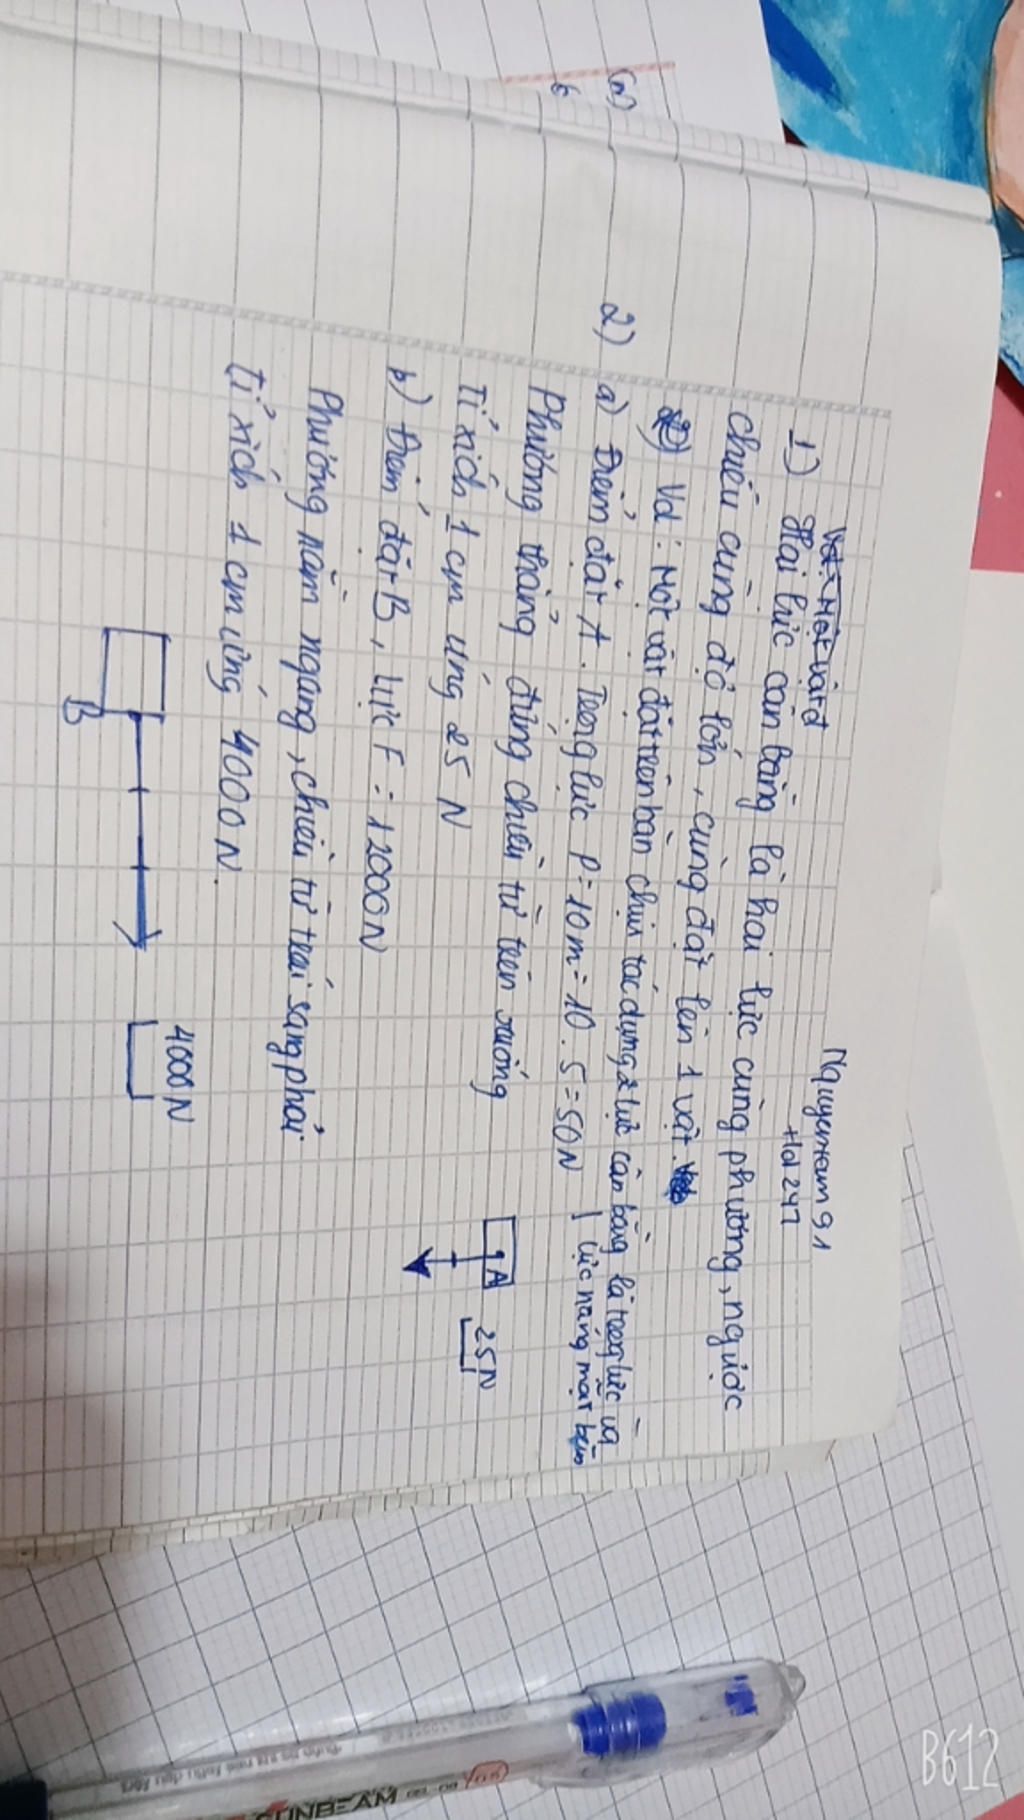 Nguyentam 91
Hd 247
Vd: Một vật đ
1) Hai lực cân bằng là hai lực cùng phương, ngược
chiều cùng độ lớn, cùng đặt lên 1 vật.
Vd: Một vật đặt trên bàn chịu tác dụng 2 lực cân bằng là trọng lực và
lực nâng mặt bàn
2) a) Điểm đặt A. Trọng lực P = 10m = 10 . 5 = 50N
Phương thẳng đứng chiều từ trên xuống
Tỉ xích 1 cm ứng 25 N
A
25N
b) Điểm đặt B, lực F = 12000N
Phương nằm ngang, chiều từ trái sang phải
Tỉ xích 1 cm ứng 4000 N.
4000N
B
SUNBEAM
B612